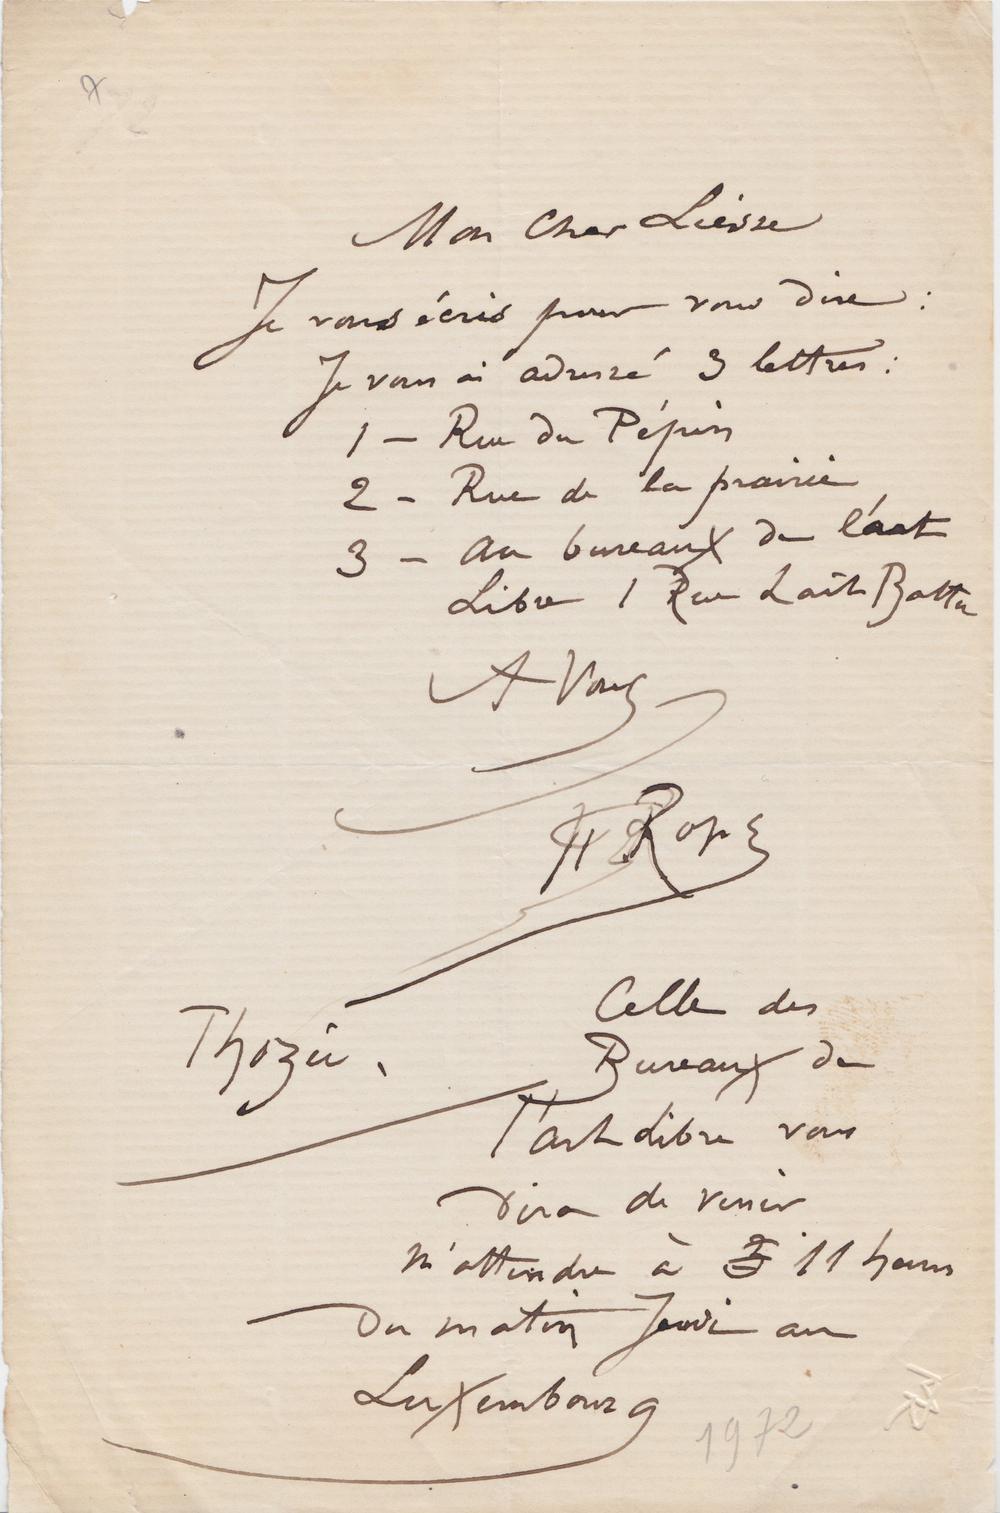 Mon Cher Liesse
Je vous écris pour vous dire :
Je vous ai adressé 3 lettres :
1 – Rue du Pépin
2 – Rue de la prairie
3 – au bureaux de l'art
Libre 1 Rue
A Vous
Rops
Thozée.
Celle des
Bureaux de
l'art Libre vous
dira de venir
m'attendre à 11 heures
du matin Jeudi au
Luxembourg
1972